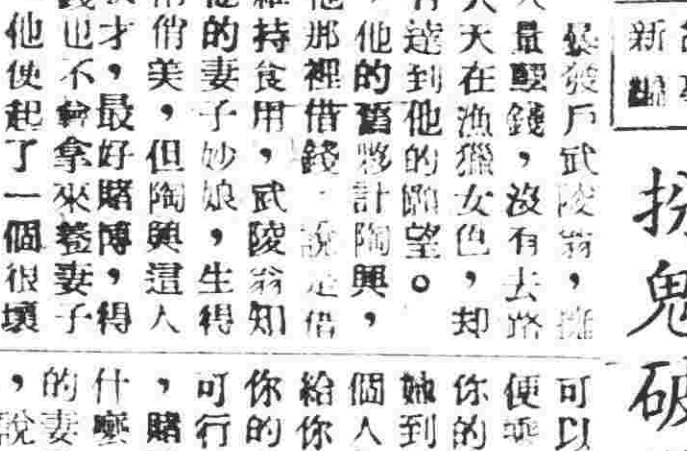 新編
扮鬼破
暴發戶武陵翁，擁
量錢，沒有去路
天在漁獵女色，却
達到他的願望。
他的舊夥計陶興，
他那裡借錢，說是借
持食用，武陵翁知
的妻子妙娘，生得
俏美，但陶興這人
才，最好賭博，得
也不幹拿來養妻子
他使起了一個很壞
可以
便乘
你的
她到
個人
給你
你的
可行
，賭
什麼
的妻
，說